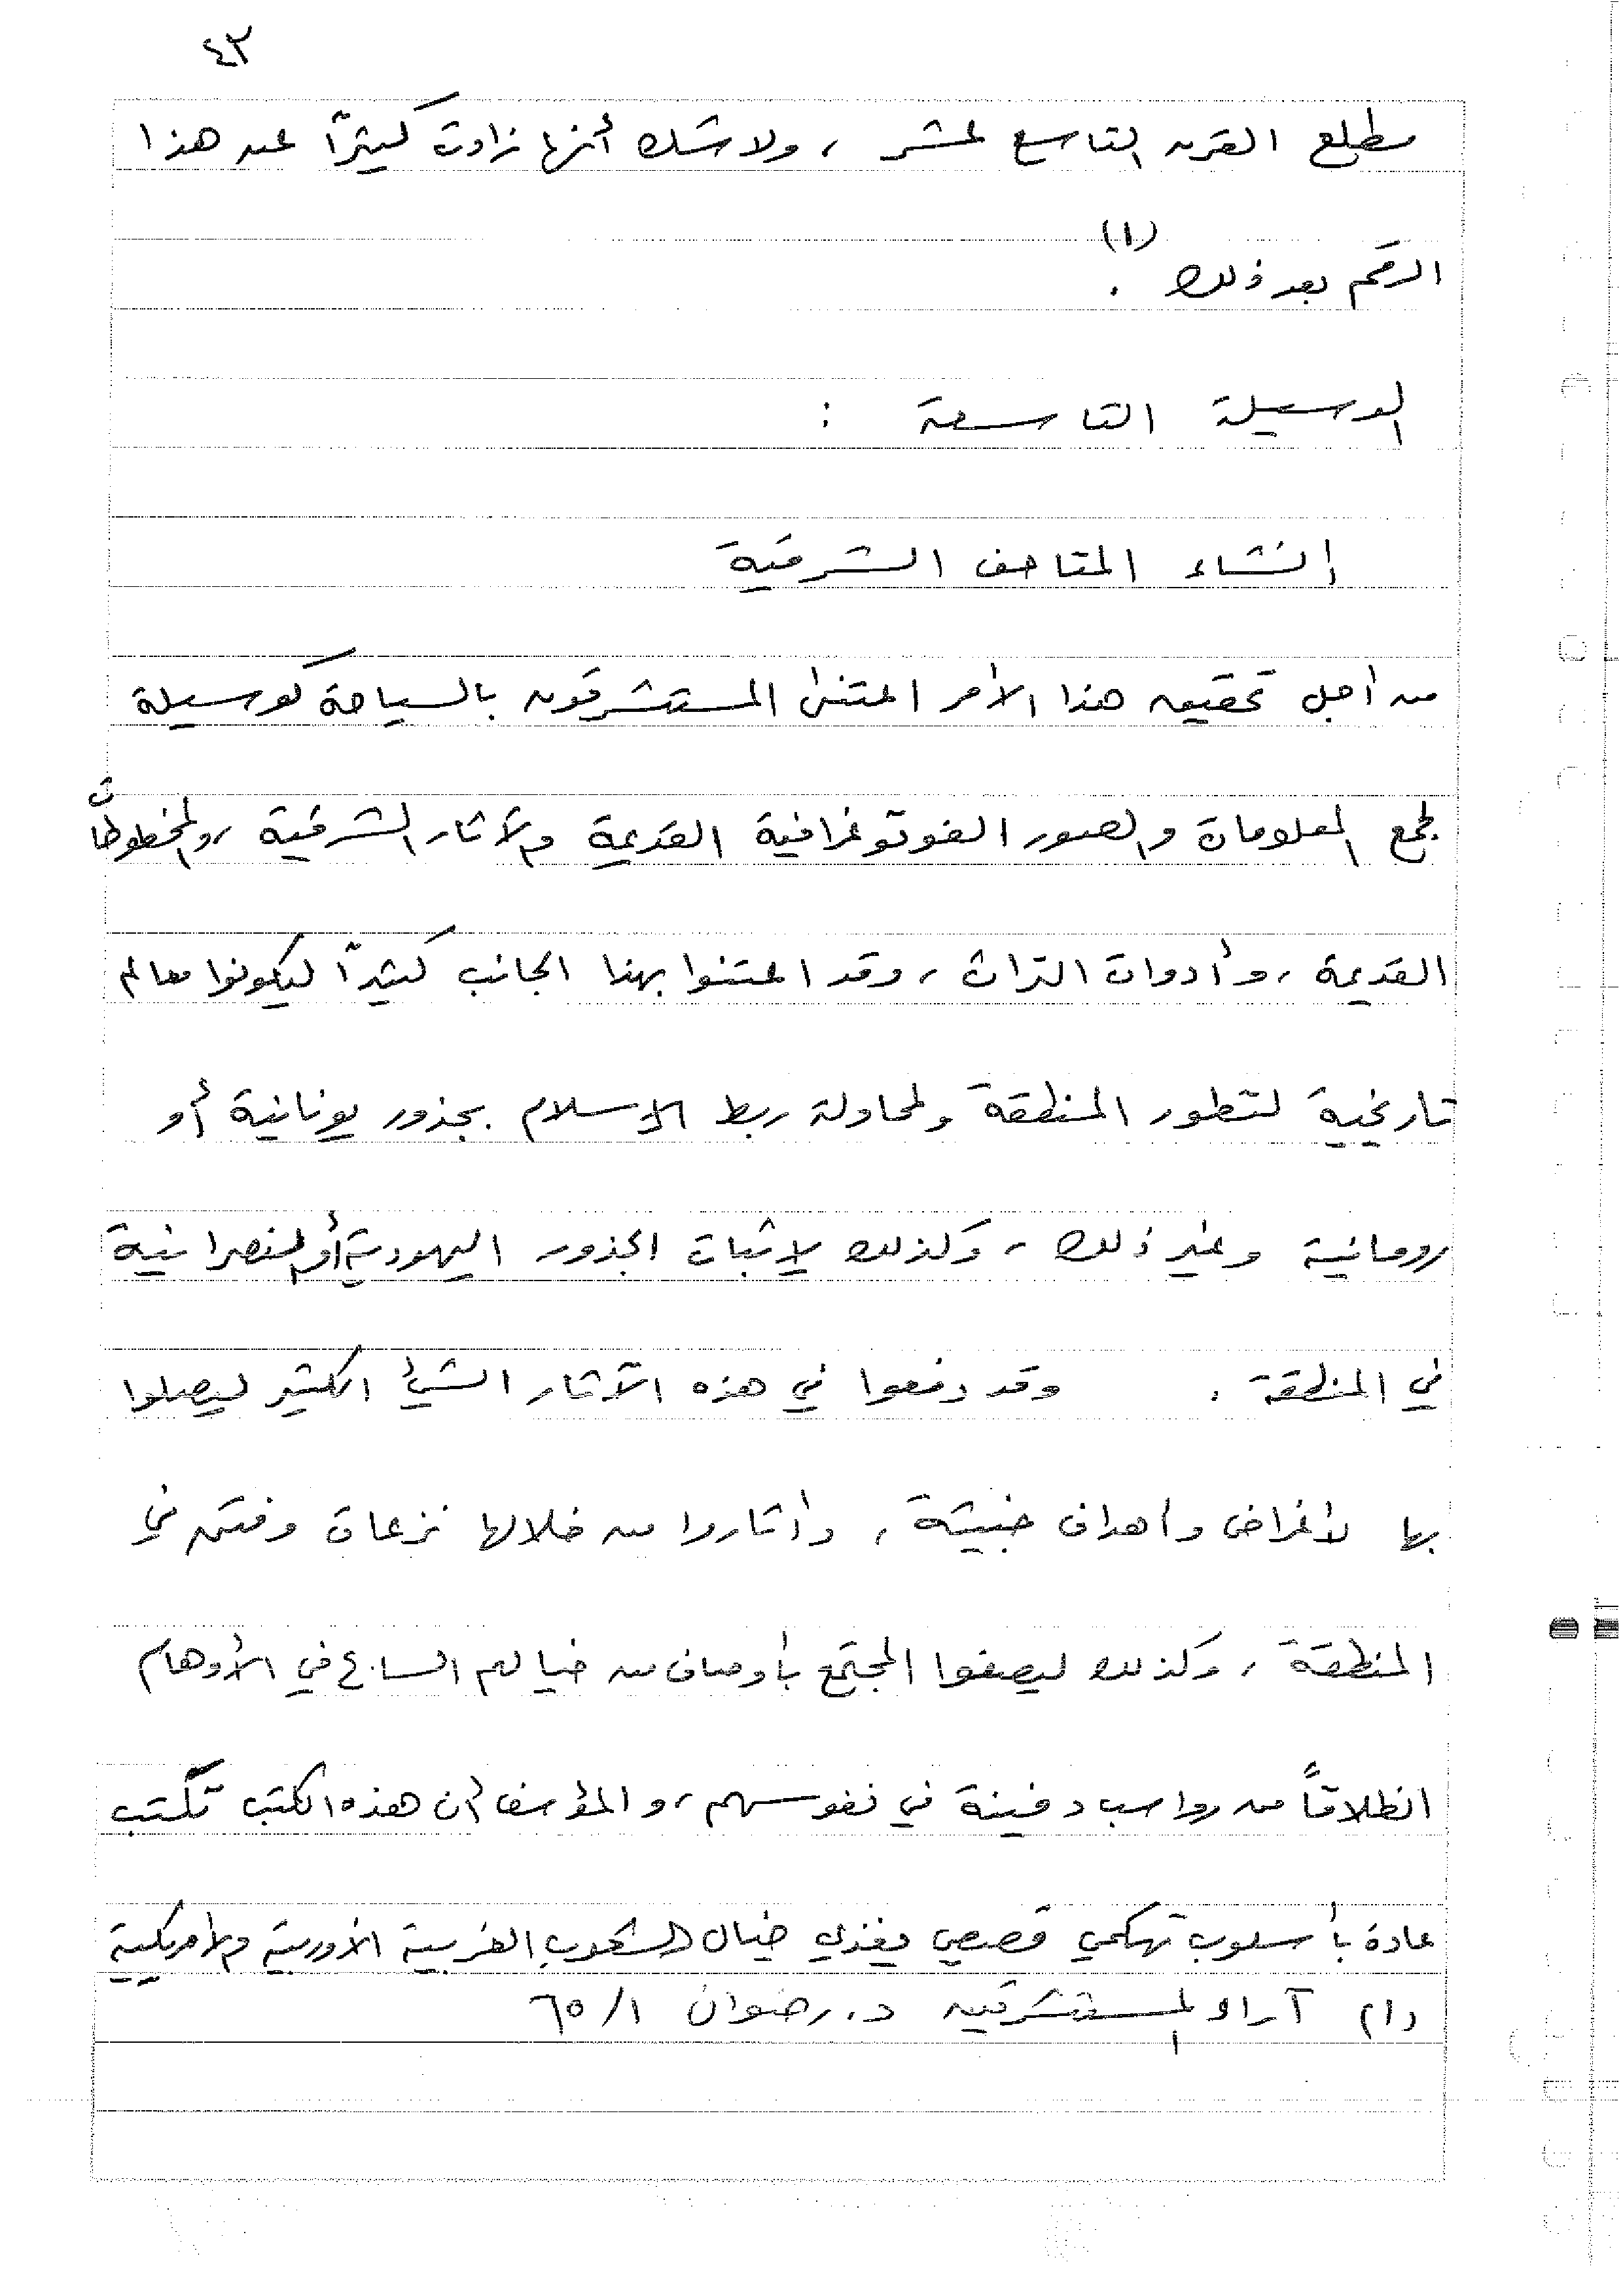 ٤٣
مطلع القرن التاسع عشر ، ولا شك أنها زادت كثيراً عن هذا
(١)
الرقم بعد ذلك .
الوسيلة التاسعة :
إنشاء المتاحف الشرقية
من أجل تحقيق هذا الأمر اعتنى المستشرقون بالسياحة كوسيلة
لجمع المعلومات والصور الفوتوغرافية القديمة والآثار الشرقية ، والمخطوطات
القديمة ، وأدوات التراث ، وقد اعتنوا بهذا الجانب كثيراً ليكونوا معالم
تاريخية لتطور المنطقة ولمحاولة ربط الإسلام بجذور يونانية أو
رومانية وغير ذلك ، وكذلك لإثبات الجذور اليهودية أو النصرانية
في المنطقة . وقد دفعوا في هذه الآثار الشيئ الكثير ليصلوا
بها لأغراض وأهداف خبيثة ، وأثاروا من خلالها نزعات وفتن في
المنطقة ، وكذلك ليصفوا المجتمع بأوصاف من خيالهم السابح في الأوهام
انطلاقاً من رواسب دفينة في نفوسهم ، والمؤسف أن هذه الكتب تكتب
عادة بأسلوب تهكمي قصصي يغذي خيال الشعوب الغربية الأوربية والأمريكية
(١) آراء المستشرقين د. رضوان ١/ ٦٥